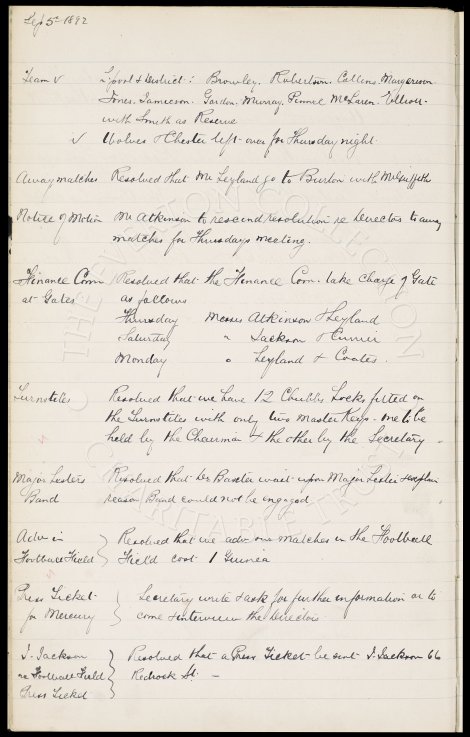 Sep 5th 1892
Team v L'pool & District: Browley. Robertson. Collins Margerison
Jones. Jamieson. Gordon. Murray. Pinnel McLaren. Elliott
with Smith as Reserve
v Wolves & Chester left over for Thursday night.
Away matches Resolved that Mr Leyland go to Burton with Mr Griffith
Notice of Motion Mr Atkinson to rescind resolution re Directors to away
matches for Thursdays meeting.
Finance Com Resolved that the Finance Com. take charge of Gate
at Gates as follows
Thursday Messrs Atkinson & Leyland
Saturday " Jackson & Currier
Monday " Leyland & Coates.
Turnstiles Resolved that we have 12 Chubbs Locks fitted on
the Turnstiles with only two Master Keys. one to be
held by the Chairman & the other by the Secretary.
Major Lesters Resolved that Dr Baxter wait upon Major Lester & explain
Band reason Band could not be engaged
Adv in Resolved that we adv our matches in the Football
Football Field Field cost 1 Guinea
Press Ticket Secretary write & ask for further information or to
for Mercury come & interview the Directors
J. Jackson Resolved that a Press Ticket be sent J. Jackson 66
re Football Field Redrock St. -
Press Ticket
THE EVERTON COLLECTION
CHARITABLE TRUST